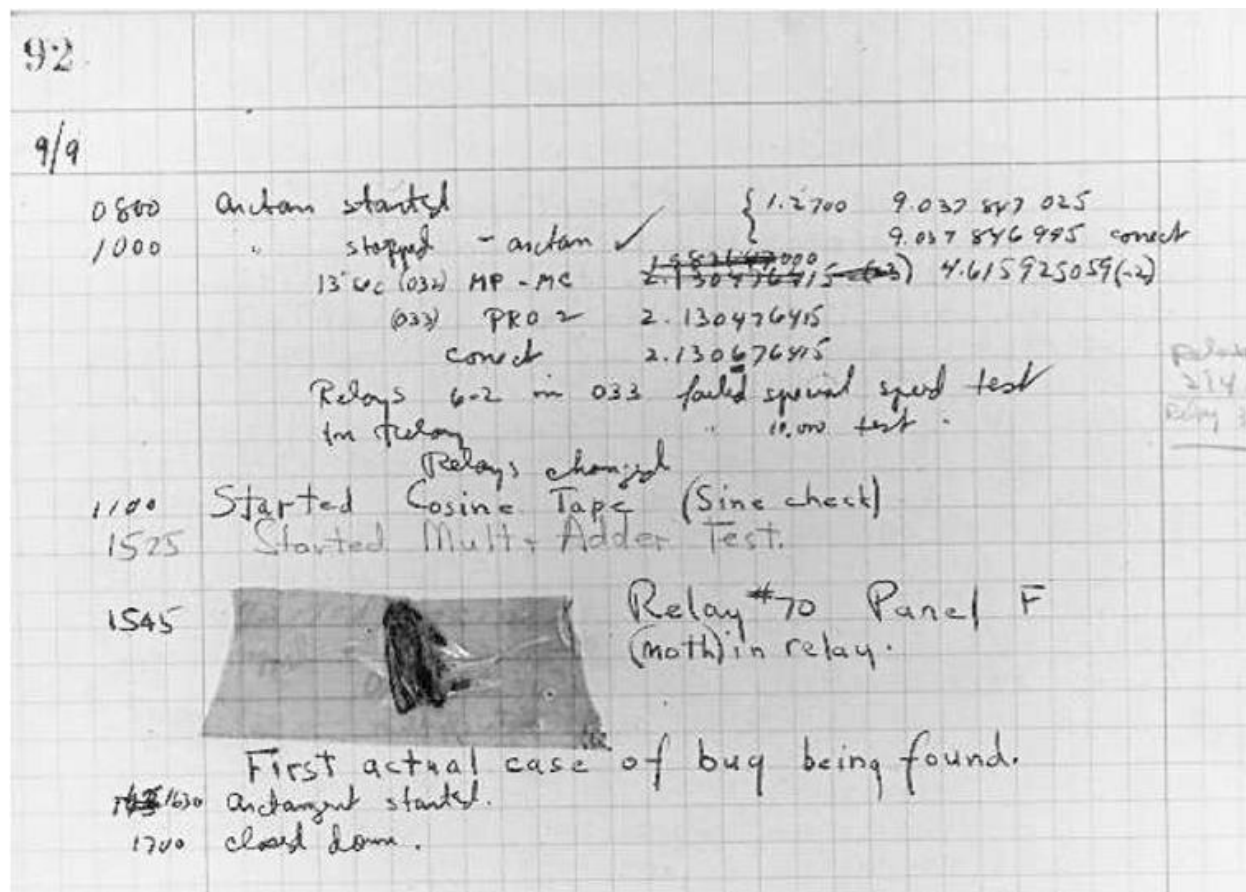 92
9/9
0800 arctan started { 1.2700 9.037 847 025
1000 " stopped - arctan ✓ 9.037 846 995 correct
13" UC (032) MP - MC 2.130476415 (-3) 4.615925059(-2)
(033) PRO 2 2.130476415
correct 2.130676415
Relays 6-2 in 033 failed special speed test
In relay " 10.000 test .
Relays changed
1100 Started Cosine Tape (Sine check)
1525 Started Mult + Adder Test.
1545 Relay #70 Panel F
(moth) in relay.
First actual case of bug being found.
1630 arctangent started.
1700 closed down.